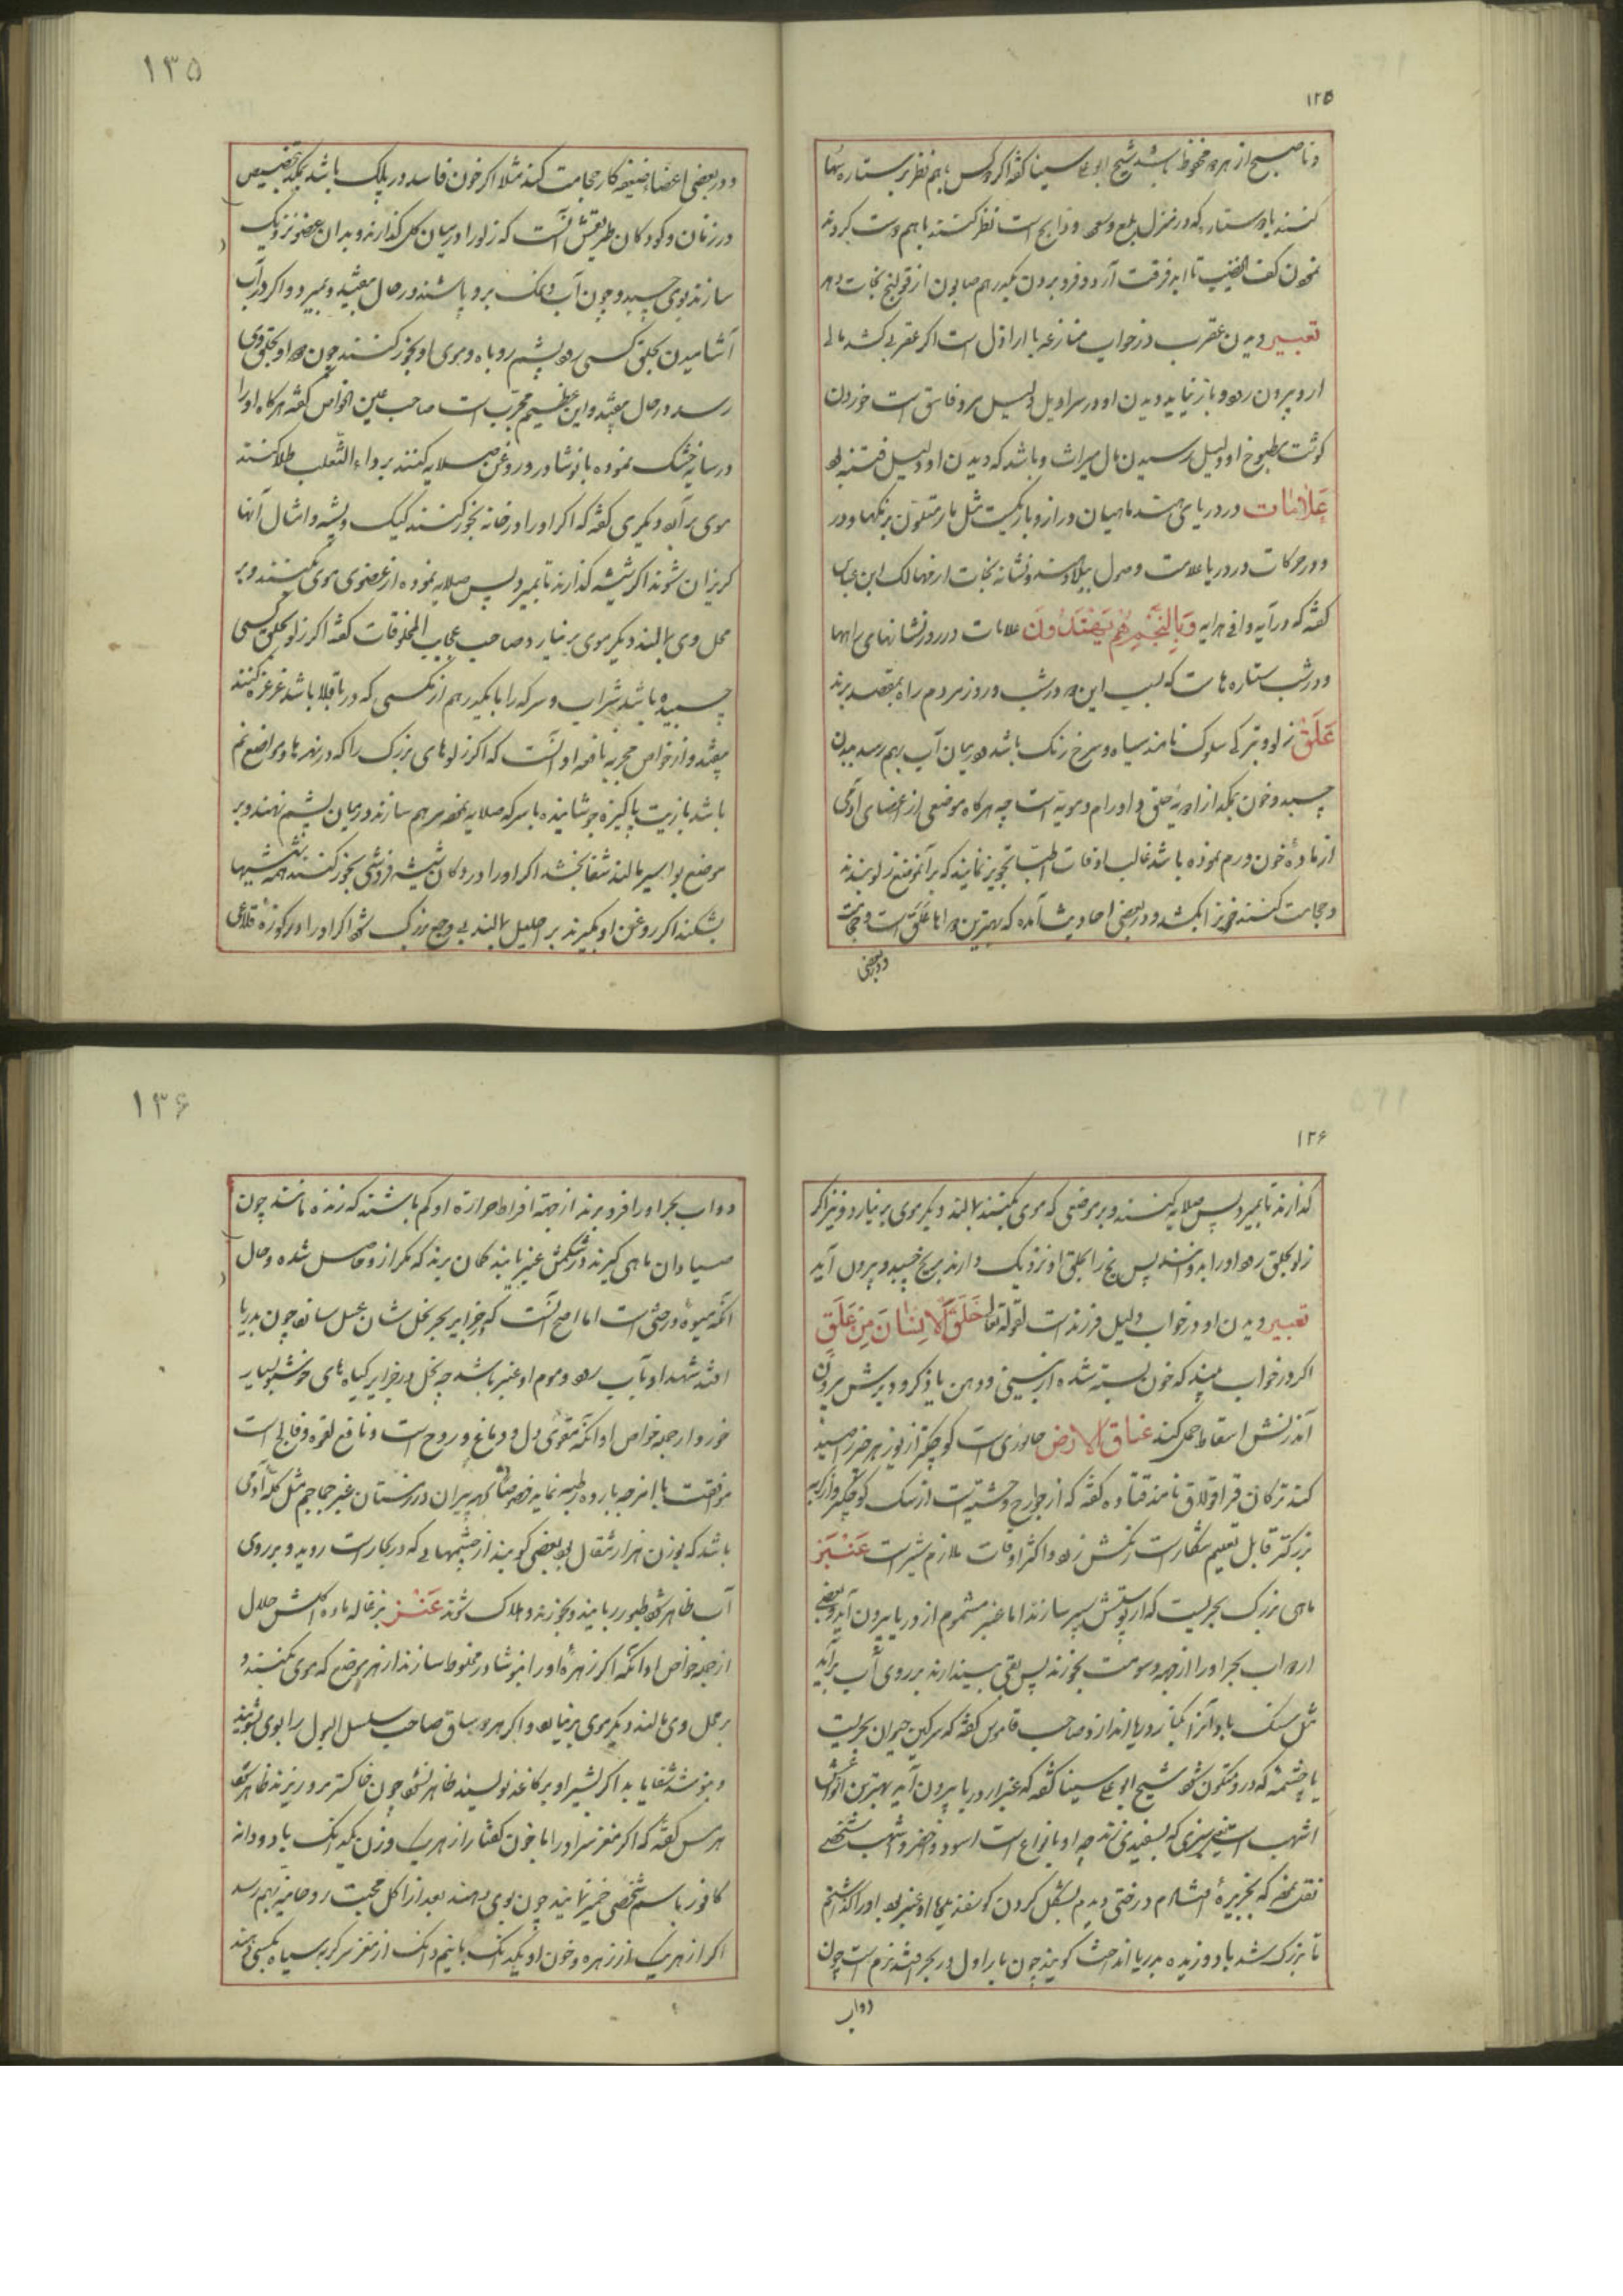 ۱۲۵
و تا صبح از هر دو محفوظ باشد شیخ ابو علی سینا گفته اگر دو کس با هم نظر بر ستاره سها
کنند یا دو ستاره که در منزل بلع و سعد ذابح است نظر کنند با هم دست کردند
کف الخضیب تا ابد فرقت آرد و فرو بردن یکدرهم صابون از قولنج نجات دهد
تعبیر دیدن عقرب در خواب منازعه با اراذل است اگر عقربی کشد مالی
از او بیرون رود و باز نیاید دیدن او در سراویل دلیل مرد فاسق است خوردن
گوشت مطبوخ او دلیل رسیدن مال میراث و باشد که دیدن او دلیل فتنه بود
عَلامات در دریای هند ماهیان دراز و باریکست مثل مار متلون برنکها و در
و در حرکات در دریا علامت وصول ببلاد هند و نشانه نجات از مهالک ابن عباس
گفته که در آیه وافی هدایه وَبِالنَّجْمِ هُمْ يَهْتَدُونَ علامات در روز نشانهای راهها
و در شب ستاره هاست که بسبب این در شب و روز مردم راه بمقصد برند
عَلَق زلو و ترکی سلوک نامند سیاه و سرخ رنگ باشد در میان آب بهم رسد ببدن
چسبد و خون بمکد از ادویه خنق و اورام دمویه است چه هرگاه موضعی از اعضای آدمی
از ماده خون ورم نموده باشد غالب اوقات اطبا تجویز نمایند که بر آنموضع زلو بندند
و حجامت کنند خونرا بکشد و در بعضی احادیث آمده که بهترین دواها عَلَق است و حجامت
و در بعضی
۱۳۵
و در بعضی اعضاء ضعیفه کار حجامت کند مثلا اگر خون فاسد در پلک باشد بمکد بتخصیص
در زنان و کودکان طریقش آنست که زلو را در میان گل گذارند و بدان عضو نزدیک
سازند بوی چسبد و چون آب و نمک برو پاشند در حال بیفتد و بمیرد و اگر در آب
آشامیدن بحلق کسی رود بپشم روباه و موی او بخور کنند چون دود او بحلق وی
رسد در حال بیفتد و این عظیم مجرب است صاحب عین الخواص گفته هرگاه او را
در سایه خشک نموده با نوشادر و روغن صلایه کنند بر داء الثعلب طلا کنند
موی برآید و دیگری گفته که اگر او را در خانه بخور کنند کیک و پشه و امثال آنها
گریزان شوند اگر در شیشه گذارند تا بمیرد پس صلایه نموده از عضوی موی بکنند و بر
محل وی بمالند دیگر موی برنیارد صاحب عجایب المخلوقات گفته اگر زلو بحلق کسی
چسبیده باشد شراب و سرکه را با یکدرهم از مگسی که در باقلا باشد غرغره کنند
بیفتد و از خواص مجربه نافعه او آنست که اگر زلوهای بزرگ را که در نهرها و مواضع نم
باشد با زیت پاکیزه جوشانیده با سرکه صلایه نموده مرهم سازند در میان پشم نهند و بر
موضع بواسیر مالند شفا بخشد اگر او را در دکان شیشه فروشی بخور کنند همه شیشها
بشکند اگر روغن او بگیرند بر احلیل بمالند بی وجع بزرگ شود اگر او را در کوزه فلاعی
۱۲۶
گذارند تا بمیرد پس صلایه کنند و بر موضعی که موی بکنند بمالند دیگر موی برنیارد و نیز اگر
زلو بحلق رود او را پس یخ را بحلق او نزدیک دارند بر یخ چسبد و بیرون آید
تعبیر دیدن او در خواب دلیل فرزند است لقوله تعالی خَلَقَ الْإِنْسَانَ مِنْ عَلَقٍ
اگر در خواب بیند که خون بسته شده از بینی و دهن یا ذکر و دبرش بیرون
آید زنش اسقاط حمل کند عناق الارض جانوری است کوچکتر از یوز هر چیز را صید
کند ترکان قراقولاق نامند قتاده گفته که از جوارح وحشیست از سگ کوچکتر و از گربه
بزرکتر قابل تعلیم شکار است رنگش زرد و اکثر اوقات ملازم شیر است عَنْبَر
ماهی بزرگ بحریست که از پوستش سپر سازند اما عنبر مشموم از دریا بیرون آید بعضی
از دواب بحر او را از جهة دسومت بخورند پس بقی بیندازند بر روی آب برآید
مثل سنگ باد آنرا بکنار دریا اندازد صاحب قاموس گفته که سرگین حیوان بحریست
یا چشمه که درو متکون شود شیخ ابو علی سینا گفته که عنبر از دریا بیرون آید بهترین انواعش
اشهب است یعنی سبزی که بسفیدی زند چه او بانواع است اسود و اخضر و اشهب شخصی
نقل نموده که بجزیره افتادم درختی دیدم بشکل گردن گوسفند او عنبر بود او را گذاشتم
تا بزرگ شد باد وزیده بدریا انداخت گویند چون بار اول در بحر افتد نرم است چون
دواب
۱۳۶
دواب بحر او را فرو برند از جهة افراط حرارة او کم باشند که زنده مانند چون
صیادان ماهی گیرند در شکمش عنبر یابند گمان برند که مگر از او حاصل شده و حال
آنکه میوه درختی است اما اصح آنست که جزایر بحر نخل شان عسل سازد چون بدریا
افتد شهد او بآب رود و موم او عنبر باشد چه نخل در جزایر گیاه های خوشبو بسیار
خورد از جمله خواص او آنکه مقوی دل و دماغ و روح است و نافع لقوه و فالج است
موافقت با امزجه بارده رطبه نماید خصوصا پیران در زمستان عنبر جماجم مثل کله آدمی
باشد که بوزن هزار مثقال بود بعضی گویند از چشمهائی که در بحار است روید و بر روی
آب ظاهر شود طیور ربایند و بخورند و هلاک شوند عَنْز بزغاله ماده اکلش حلال
از جمله خواص او آنکه اگر زهره او را بنوشادر مخلوط سازند از هر موضع که موی بکنند و
بر محل وی مالند دیگر موی برنیاید و اگر هر دو ساق صاحب سلسل البول را بوی بشویند
و بنوشد شفا یابد اگر بشیر او بر کاغذ نویسند ظاهر نشود چون خاکستر برو ریزند ظاهر شود
هرمس گفته که اگر مغز سر او را با خون کفتار از هر یک وزن یکدانگ با دو دانه
کافور باسم شخصی خمیر نمایند چون بوی دهند بعد از اکل محبت روحانیه بهم رسد
اگر از هر یک از زهره و خون او یکدانگ با نیم دانگ از مغز سر گربه سیاه بکسی دهند